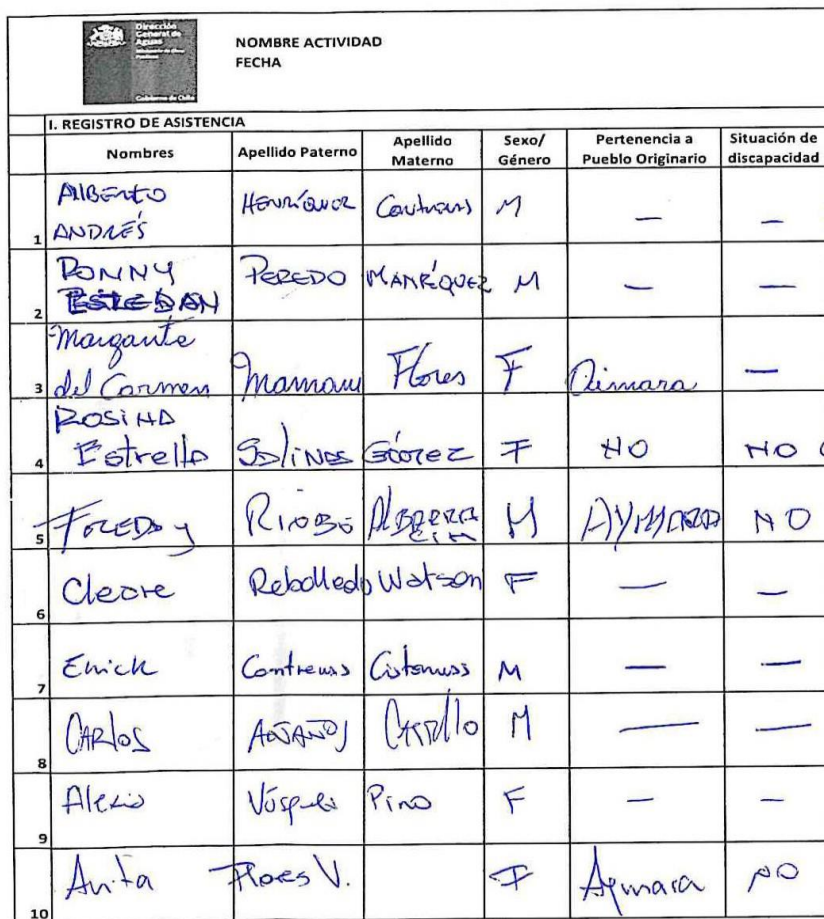 Dirección
General de
Aguas
Gobierno de Chile
NOMBRE ACTIVIDAD
FECHA
I. REGISTRO DE ASISTENCIA
Nombres Apellido Paterno Apellido Materno Sexo/ Género Pertenencia a Pueblo Originario Situación de discapacidad
1 Alberto Andrés Henríquez Contreras M — —
2 Ponny Esteban Peredo Manríquez M — —
3 Margarita del Carmen Mamani Flores F Aimara —
4 Rosina Estrella Salinas Gómez F NO NO
5 Freddy Riobó Albarracin M AYMARA NO
6 Rebolledo Watson F — —
7 Erick Contreras M — —
8 Carlos Carrillo M — —
9 Pino F — —
10 Anita Flores V. F Aymara NO